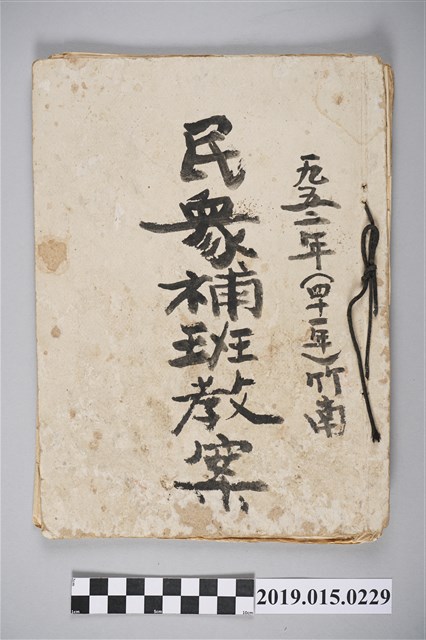 一九五二年(四十一年)竹南
民衆補班教案
1cm 5cm 10cm
2019.015.0229